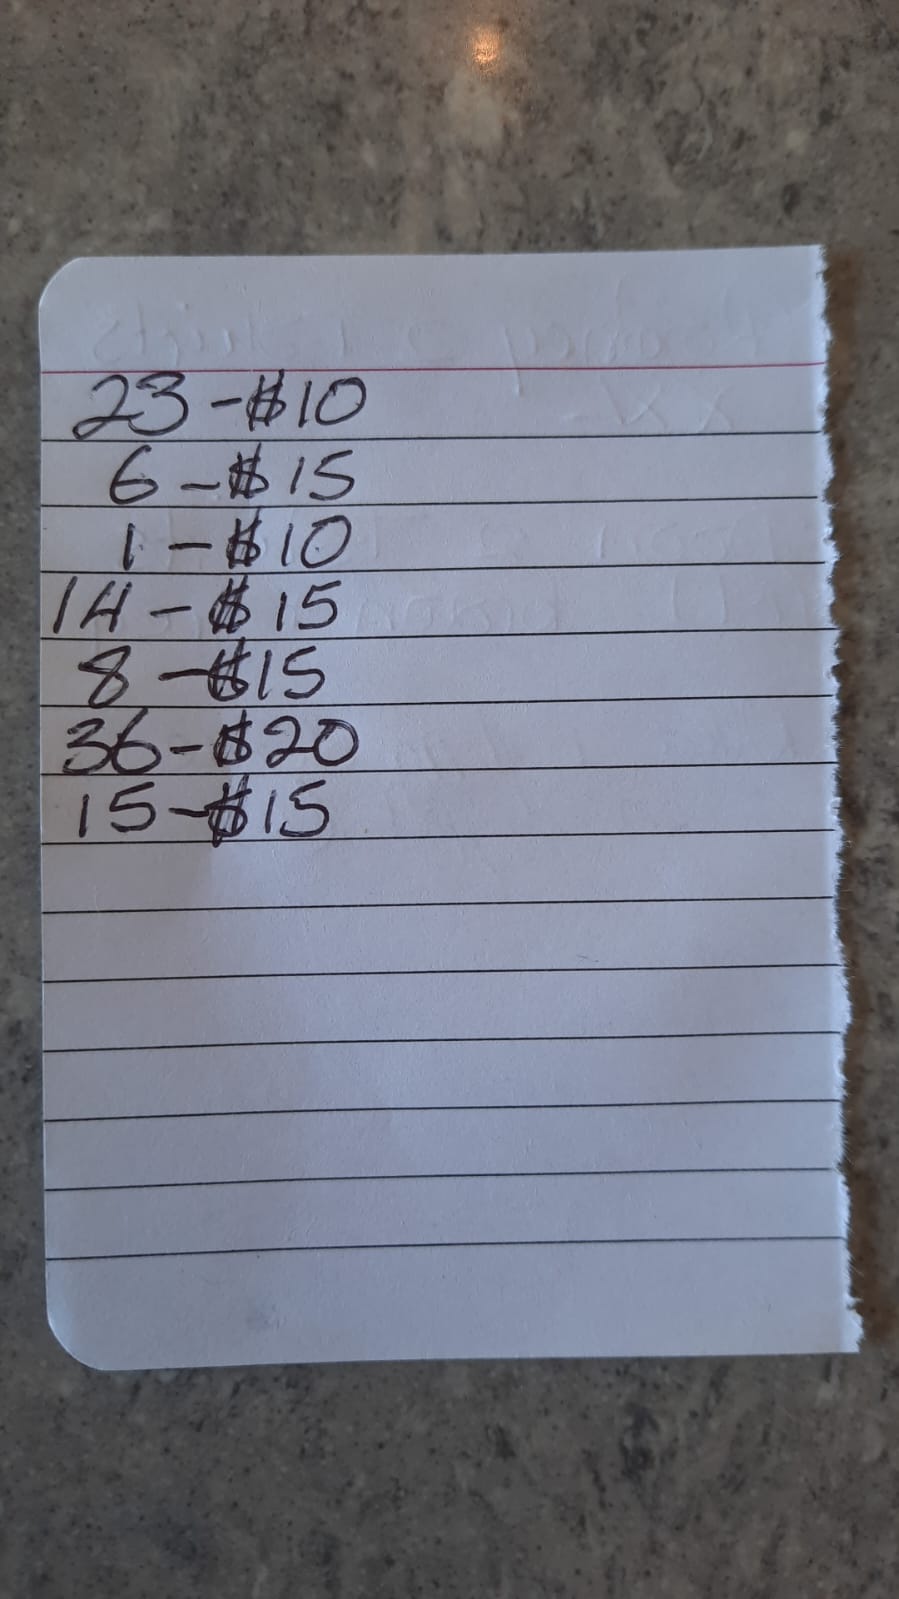 23 - $10
6 - $15
1 - $10
14 - $15
8 - $15
36 - $20
15 - $15